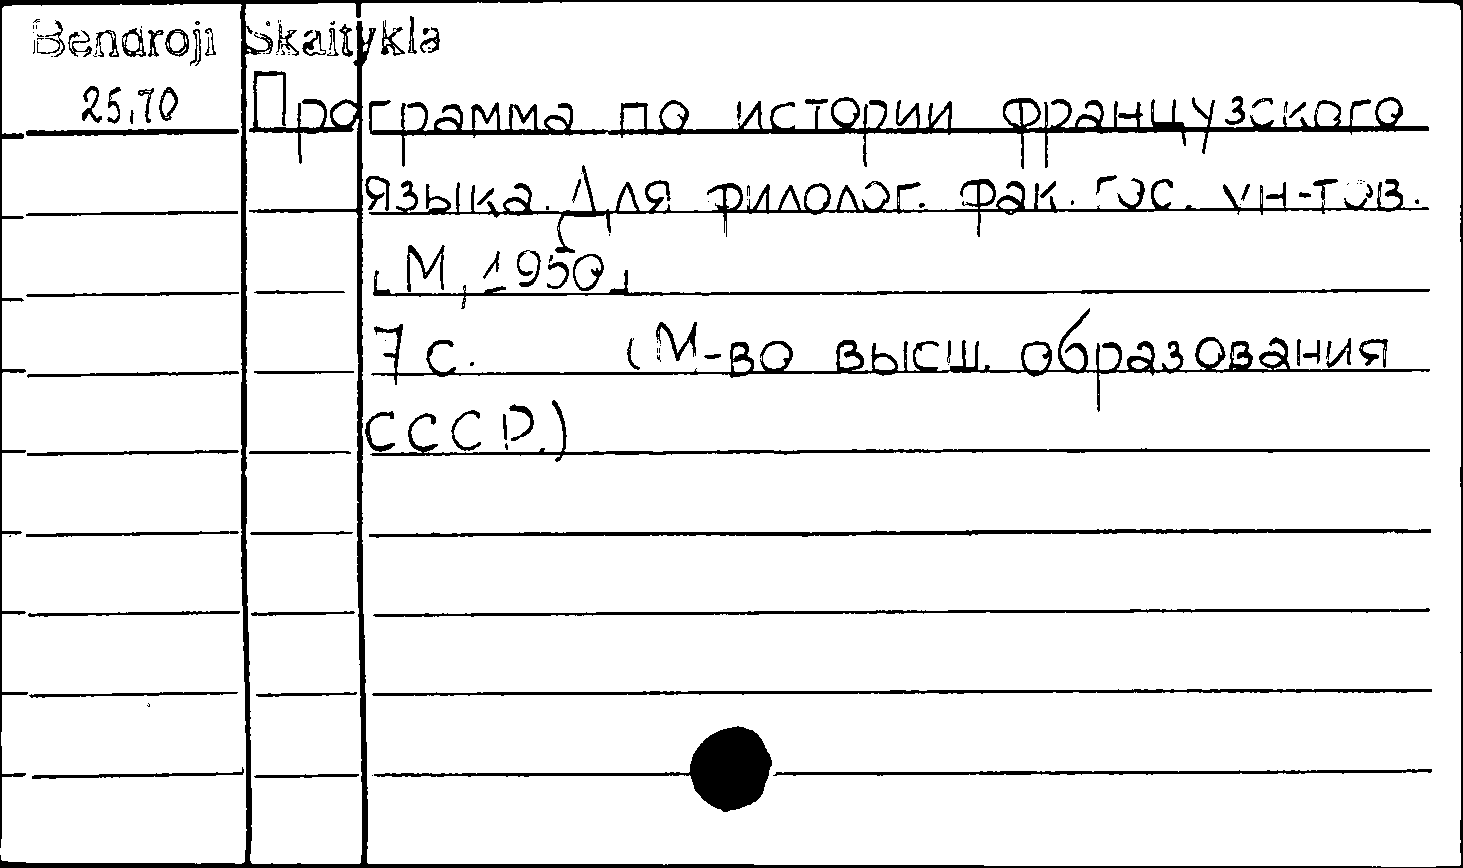 Bendroji Skaitykla
25.70 Программа по истории французского
языка. Для филолог. фак. гос. ун-тов.
[М, 1950]
7 с. (М-во высш. образования
СССР.)